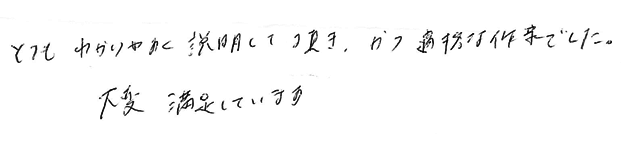 とてもわかりやすく説明して頂き、かつ適切な作業でした。
大変 満足しています